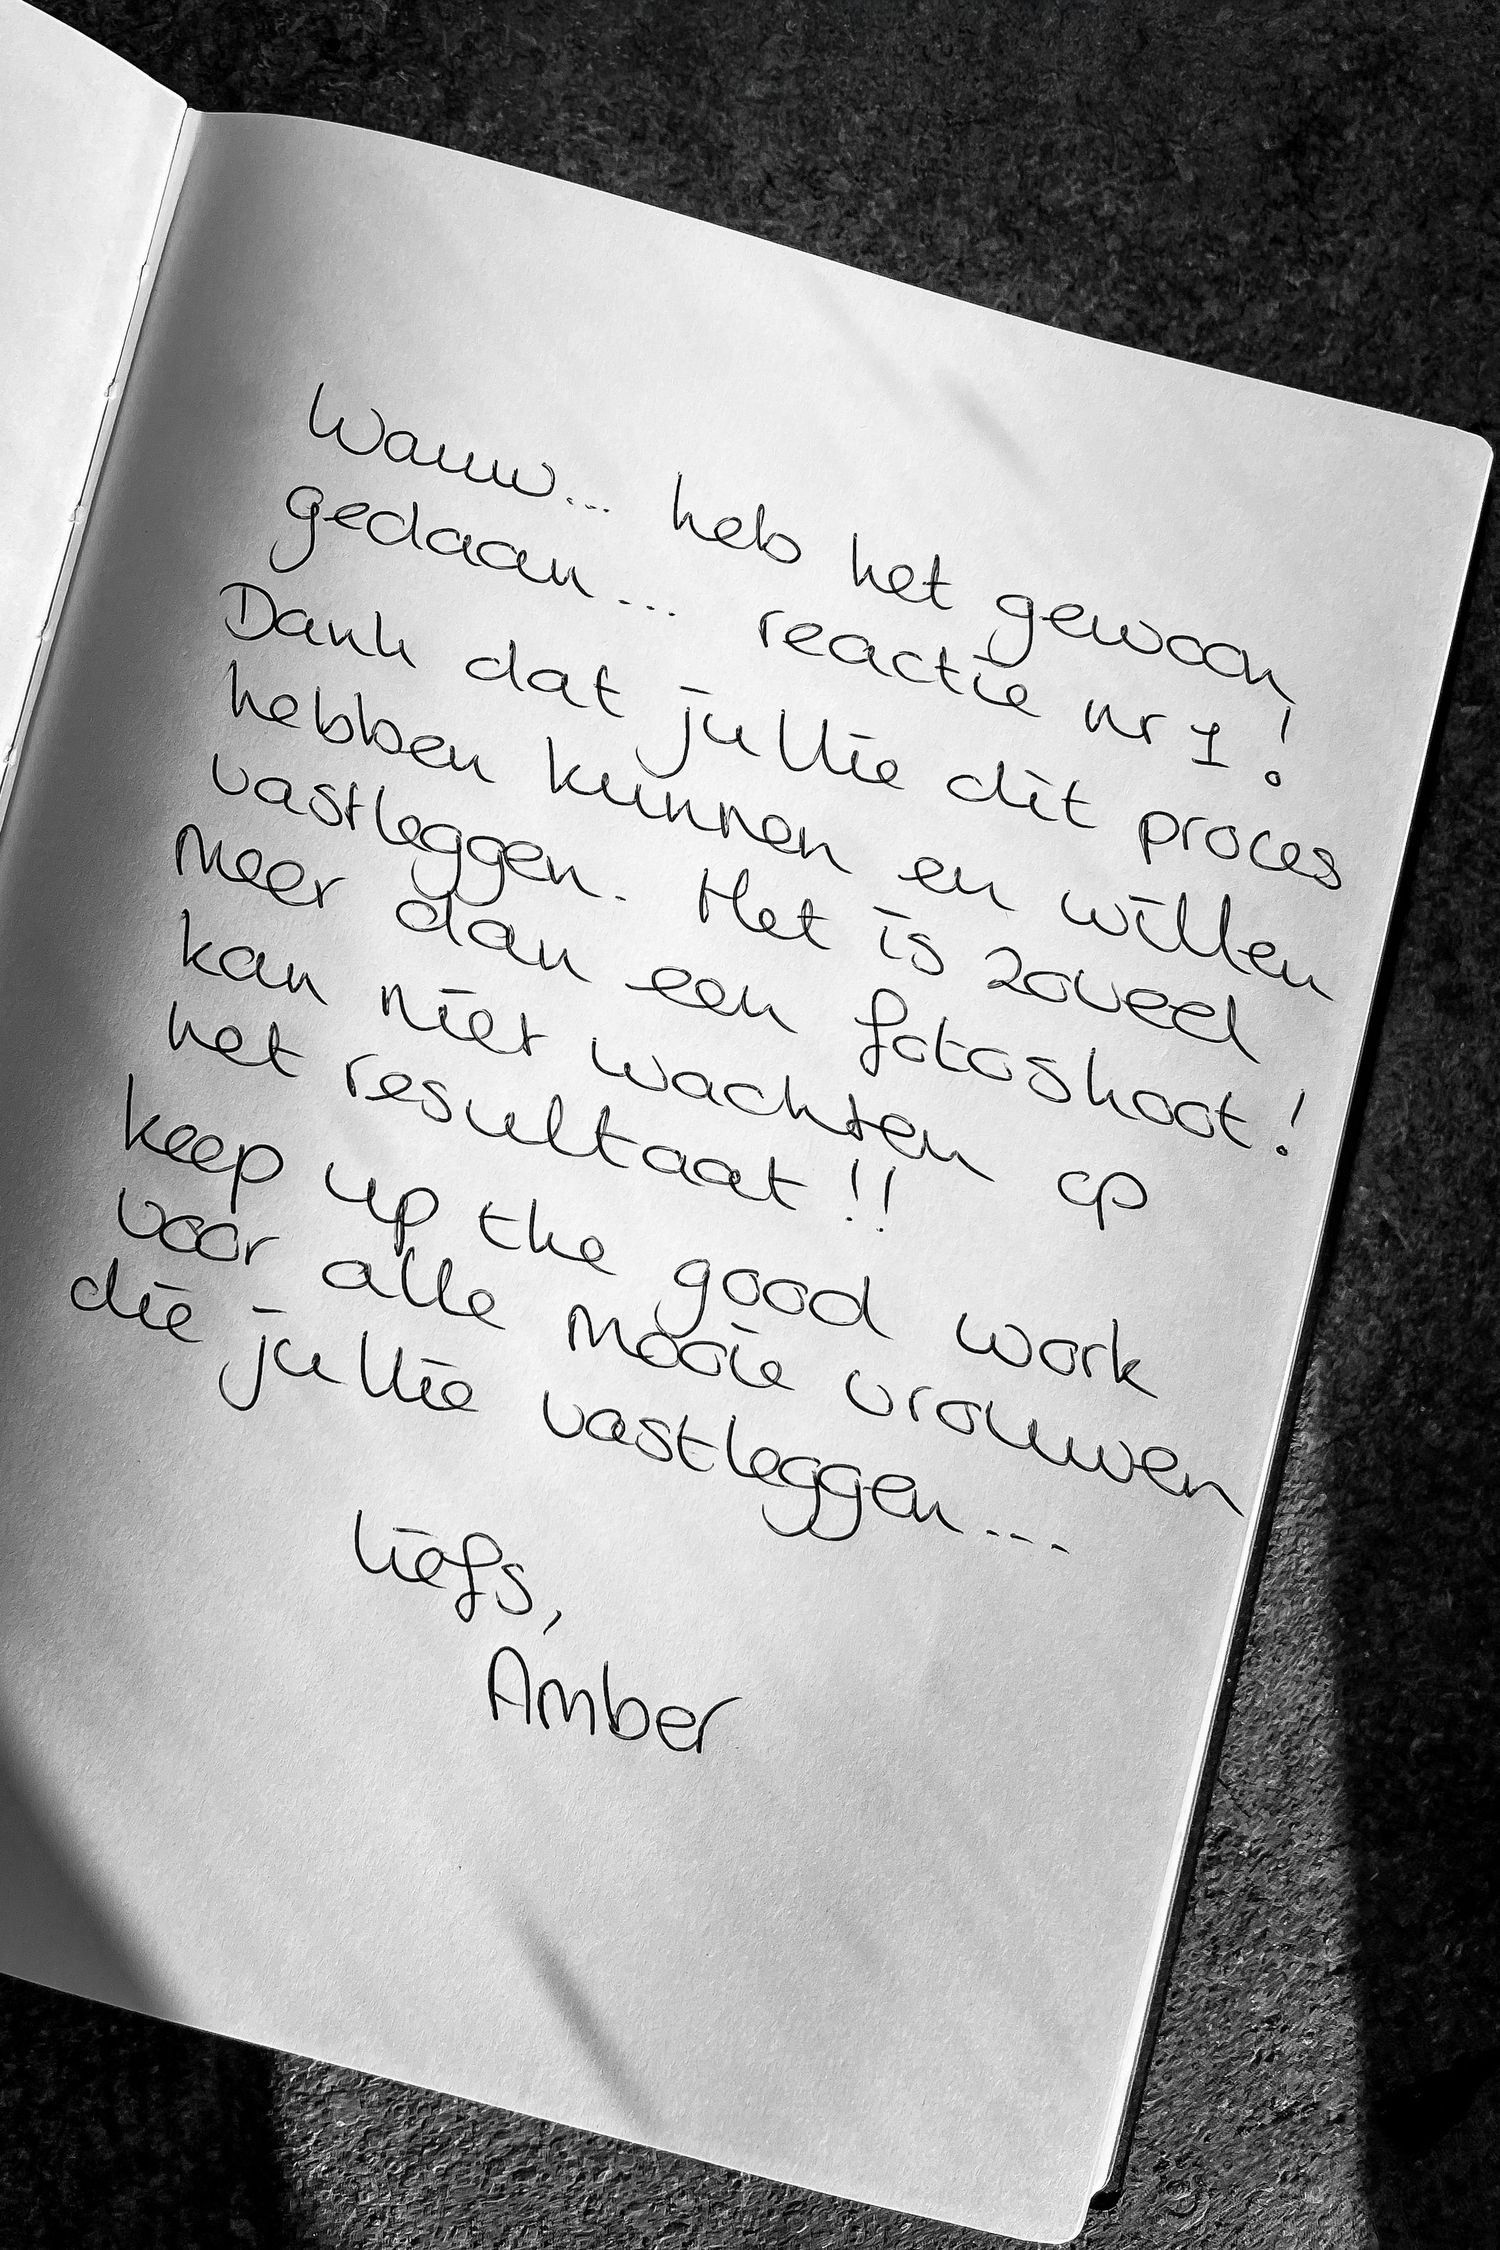 Wauw... heb het gewoon
gedaan... reactie nr 1!
Dank dat jullie dit proces
hebben kunnen en willen
vastleggen. Het is zoveel
meer dan een fotoshoot!
kan niet wachten op
het resultaat!!
keep up the good work
voor alle mooie vrouwen
die jullie vastleggen...
liefs,
Amber